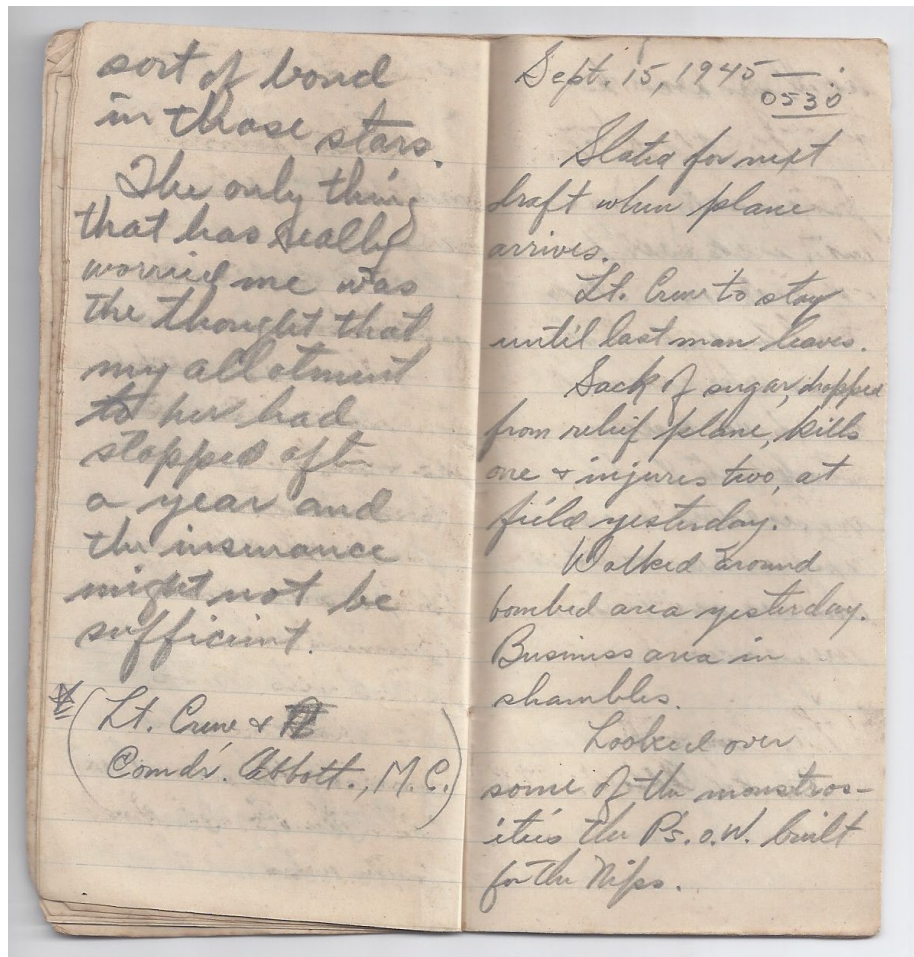 sort of bond
in those stars.
The only thing
that has really
worried me was
the thought that
my allotment
to her had
stopped after
a year and
the insurance
might not be
sufficient.
(Lt. Crew &
Comdr. Abbott., M.C.)
Sept. 15, 1945 —
0530
Slated for next
draft when plane
arrives.
Lt. Crew to stay
until last man leaves.
Sack of sugar, dropped
from relief plane, kills
one & injures two, at
field yesterday.
Walked around
bombed area yesterday.
Business area in
shambles.
Looked over
some of the monstros-
ities the P's. o. W. built
for the Nips.